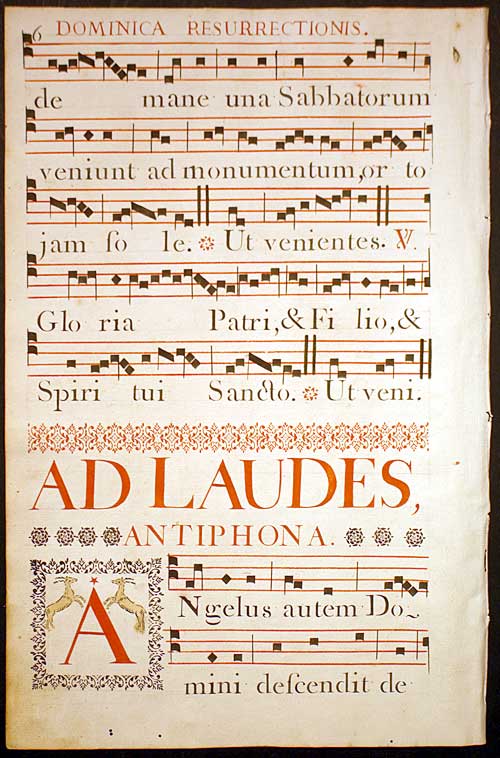 6 DOMINICA RESURRECTIONIS.
de mane una Sabbatorum
veniunt ad monumentum, or to
jam ſo le. Ut venientes. ℣.
Glo ria Patri, & Fi lio, &
Spiri tui Sancto. Ut veni.
AD LAUDES,
ANTIPHONA.
ANgelus autem Do~
mini deſcendit de